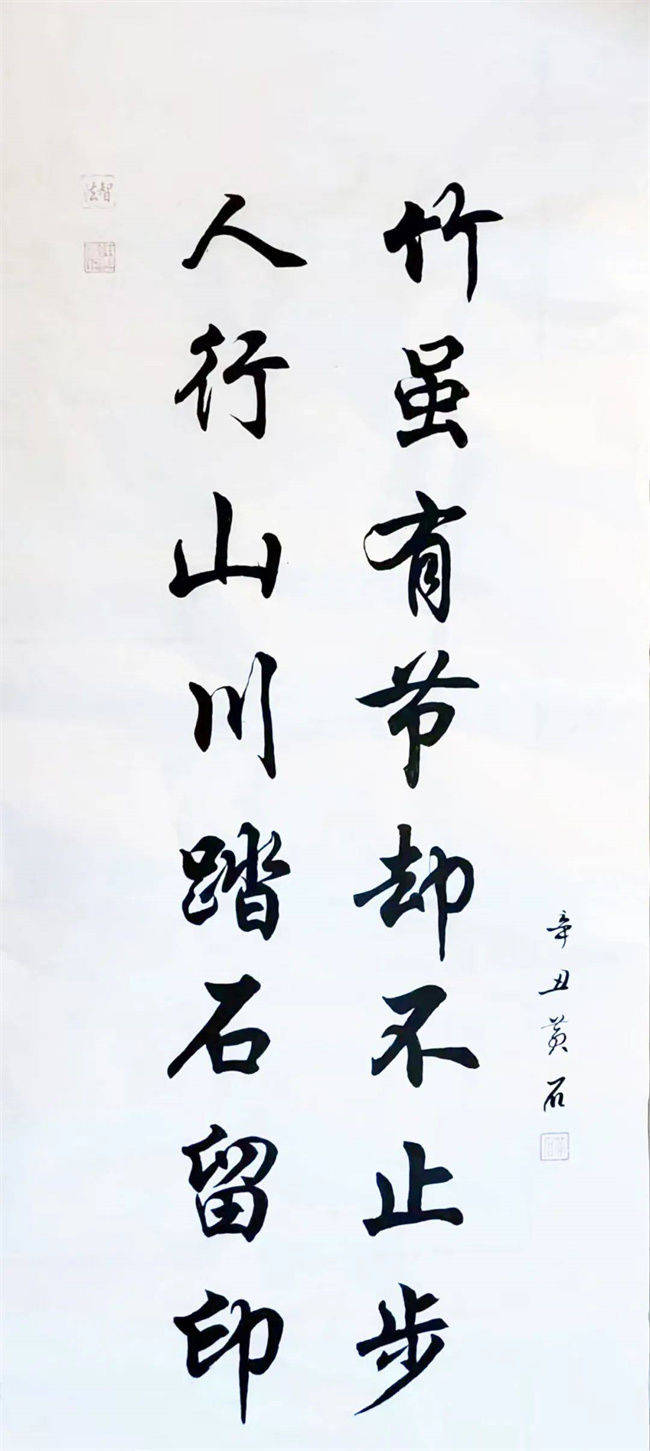 竹虽有节却不止步
人行山川踏石留印
辛丑黄石